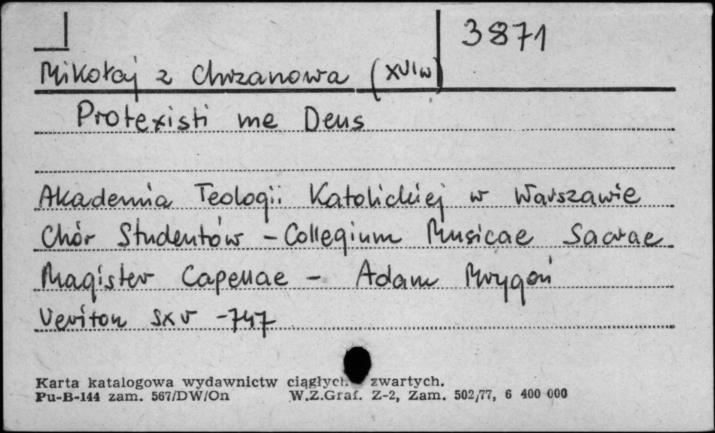 3871
Mikołaj z Chrzanowa (XVIw)
Protexisti me Deus
Akademia Teologii Katolickiej w Warszawie
Chór Studentów - Collegium Musicae Sacrae
Magister Capellae - Adam Mrygoń
Veriton SXV -747
Karta katalogowa wydawnictw ciągłych zwartych.
Pu-B-144 zam. 567/DW/On W.Z.Graf. Z-2, Zam. 502/77, 6 400 000